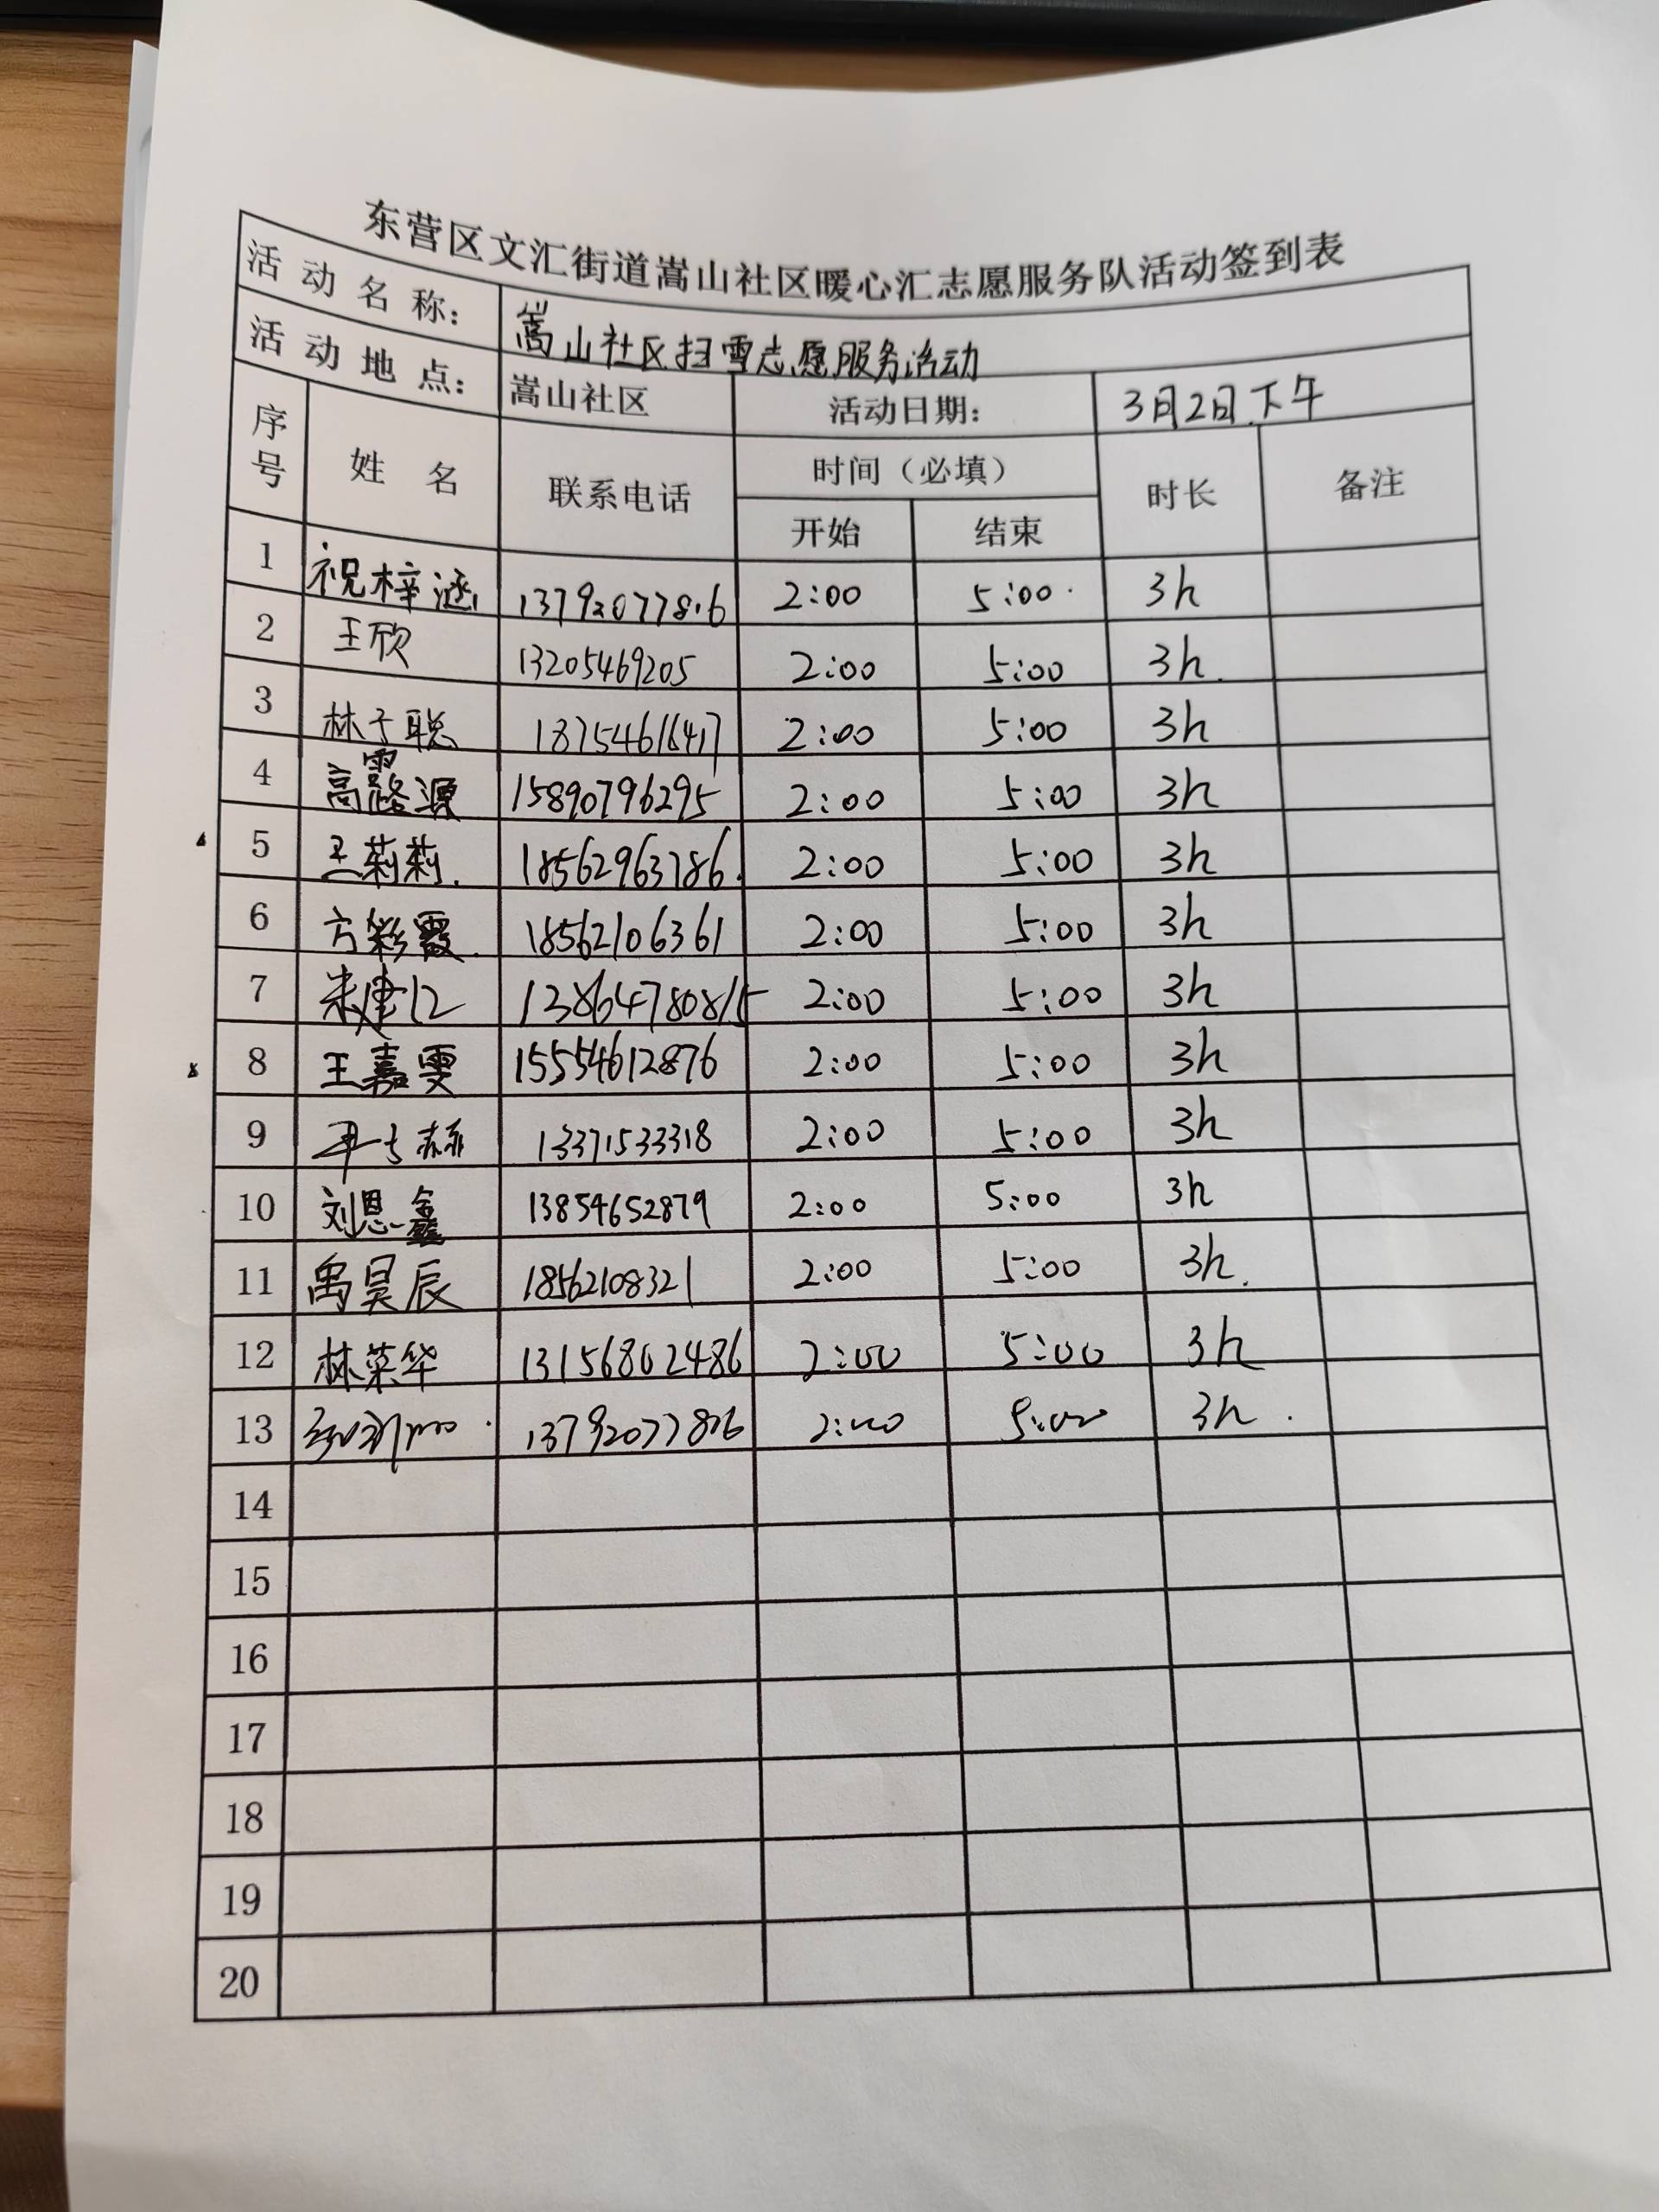 东营区文汇街道嵩山社区暖心汇志愿服务队活动签到表
活动名称： 嵩山社区扫雪志愿服务活动
活动地点： 嵩山社区 活动日期： 3月2日下午
序号 姓名 联系电话 时间（必填） 时长 备注
开始 结束
1 祝梓涵 13792077816 2:00 5:00 3h
2 王欣 13205469205 2:00 5:00 3h
3 林子聪 18754616417 2:00 5:00 3h
4 高露源 15890796295 2:00 5:00 3h
5 王莉莉 18562963786 2:00 5:00 3h
6 方彩霞 18562106361 2:00 5:00 3h
7 13864780815 2:00 5:00 3h
8 王嘉雯 15554612876 2:00 5:00 3h
9 13371533318 2:00 5:00 3h
10 刘恩鑫 13854652879 2:00 5:00 3h
11 禹昊辰 18562108321 2:00 5:00 3h
12 林荣华 13156802486 2:00 5:00 3h
13 13792077816 2:00 5:00 3h
14
15
16
17
18
19
20